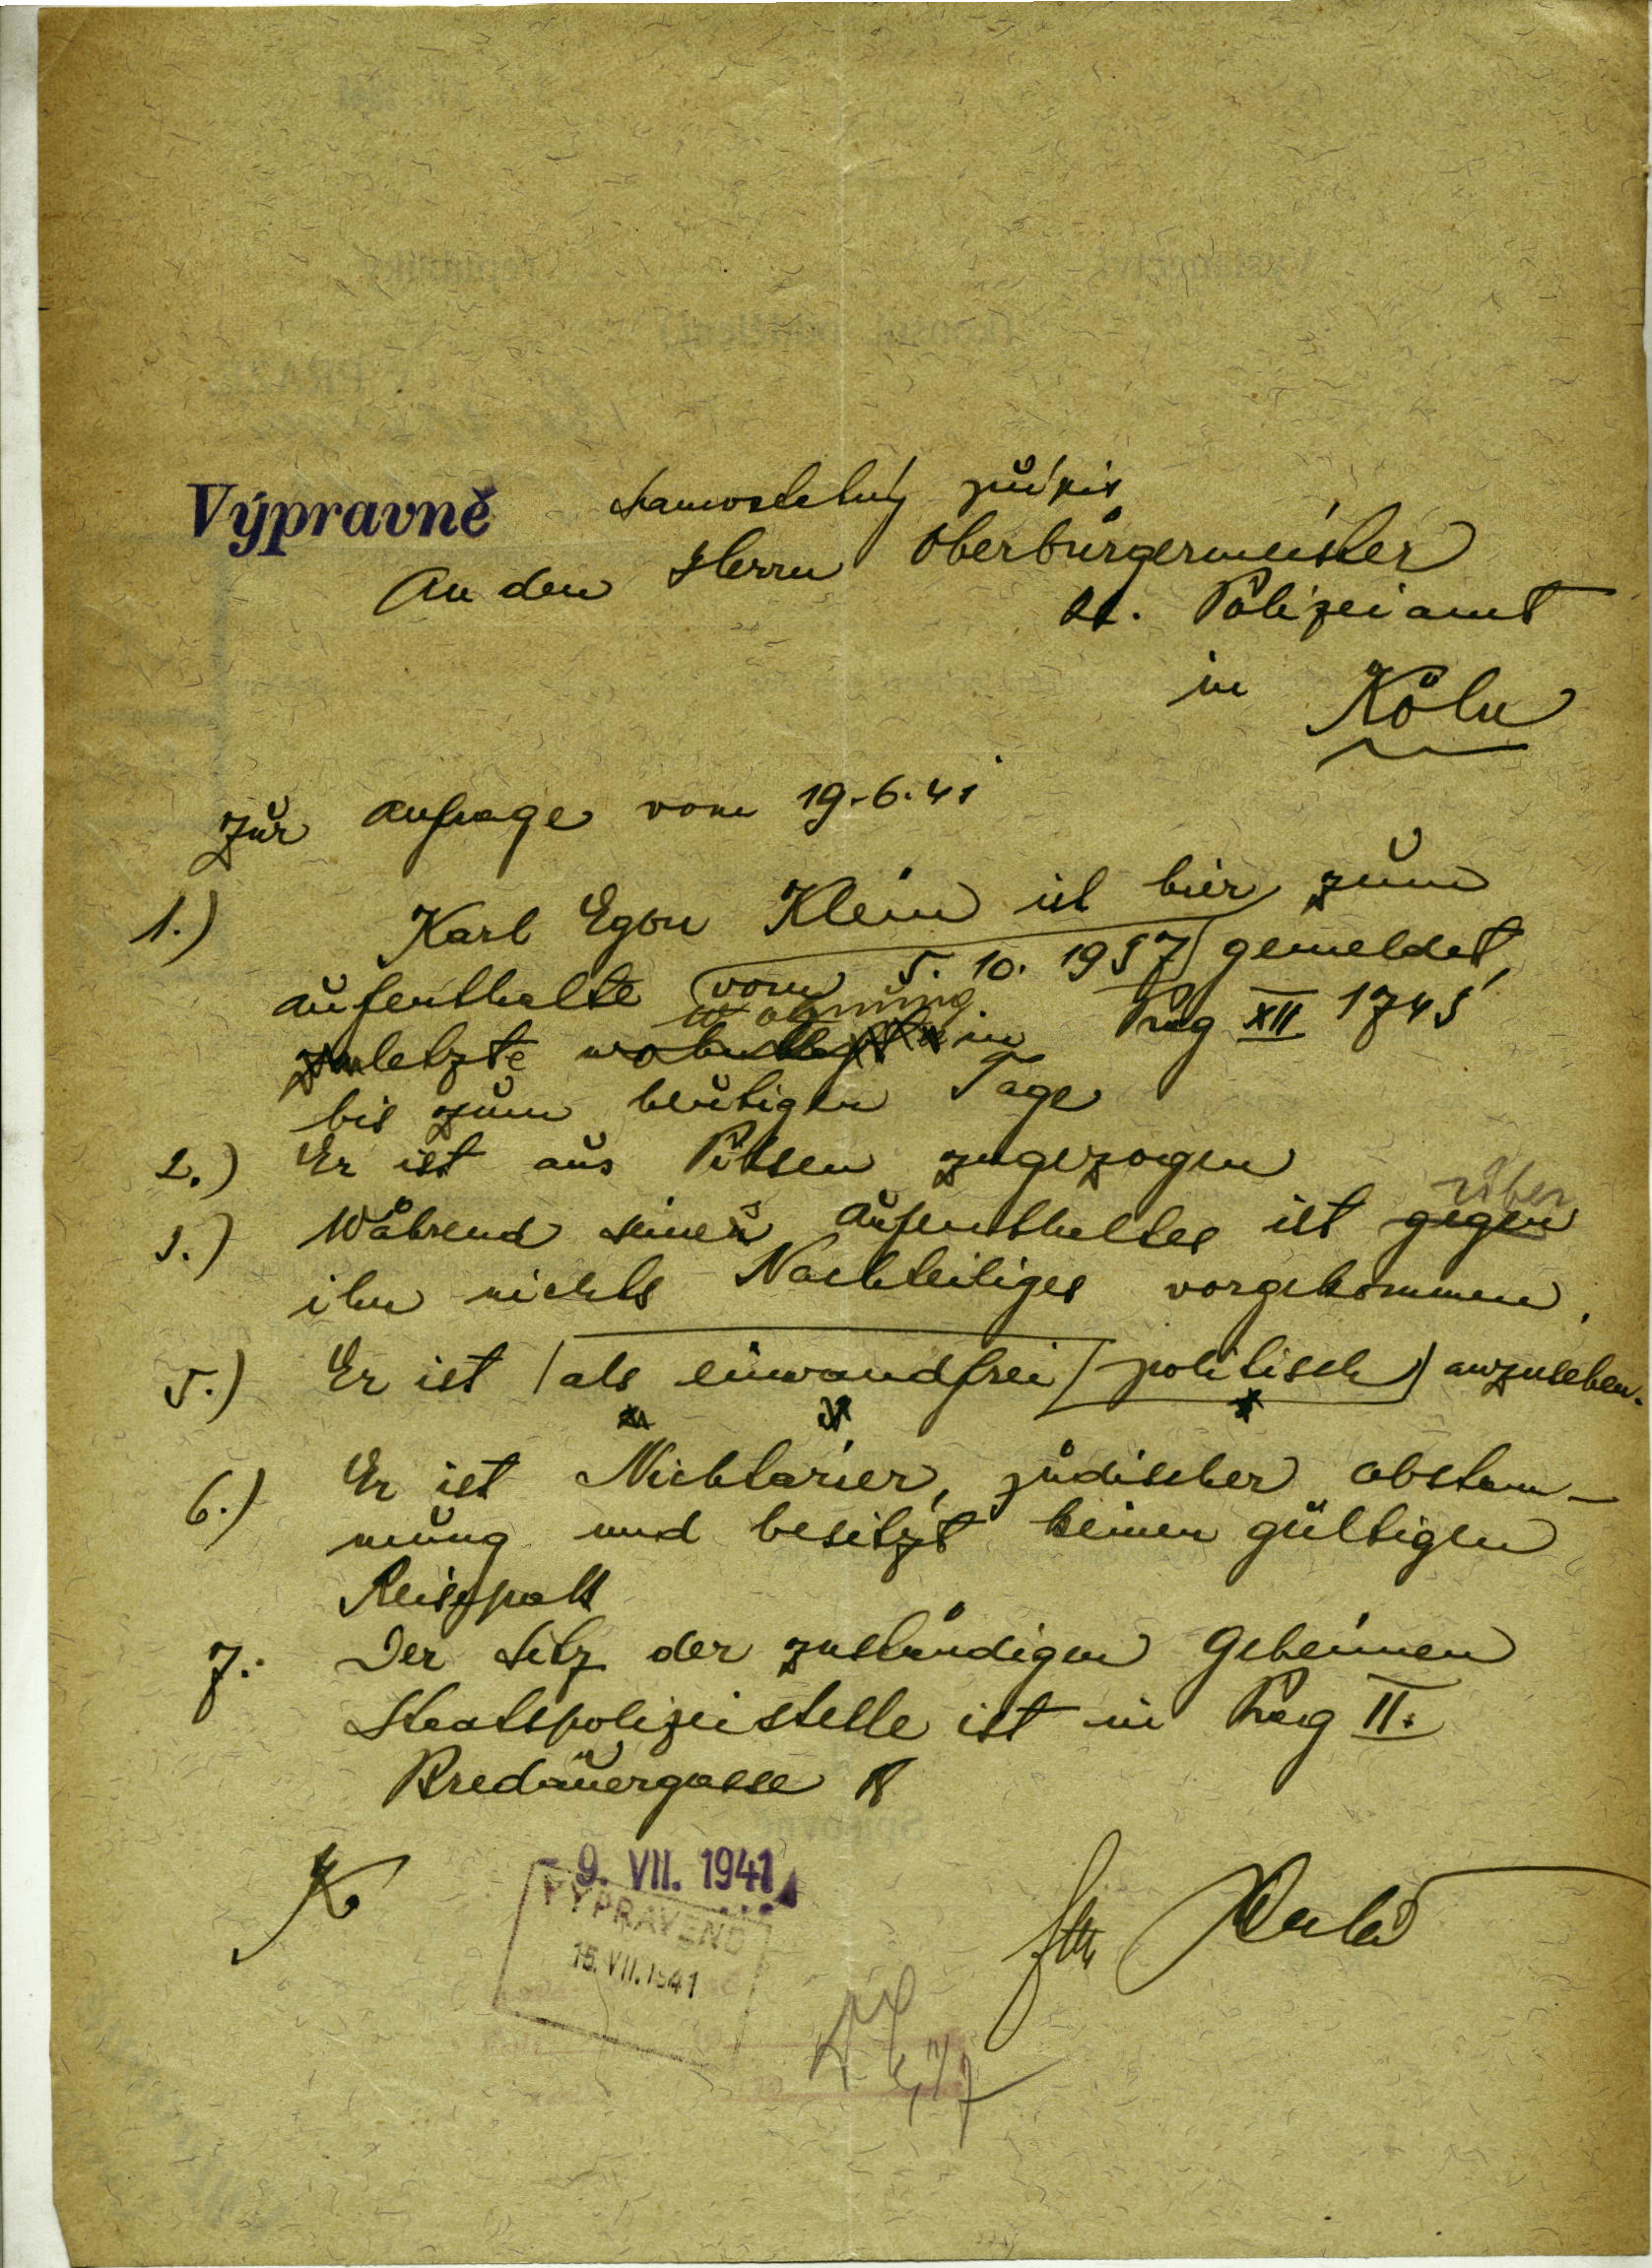 Výpravně
samostatný
An den Herrn Oberbürgermeister
Polizeiamt
in Köln
Zur Anfrage vom 19.6.41
1.) Karl Egon Klein ist hier zum
Aufenthalte vom 5. 10. 1937 gemeldet,
Wohnung
zuletzte wohnhaft in Prag XII 1745
bis zum heutigen Tage
2.) Er ist aus Pilsen zugezogen
über
3.) Während seines Aufenthaltes ist gegen
ihn nichts Nachteiliges vorgekommen.
5.) Er ist als einwandfrei politisch anzusehen.
6.) Er ist Nichtarier, jüdischer Abstam-
mung und besitzt keinen gültigen
Reisepaß
7. Der Sitz der zuständigen Geheimen
Staatspolizeistelle ist in Prag II.
Bredauergasse
- 9. VII. 1941
VYPRAVENO
15. VII. 1941